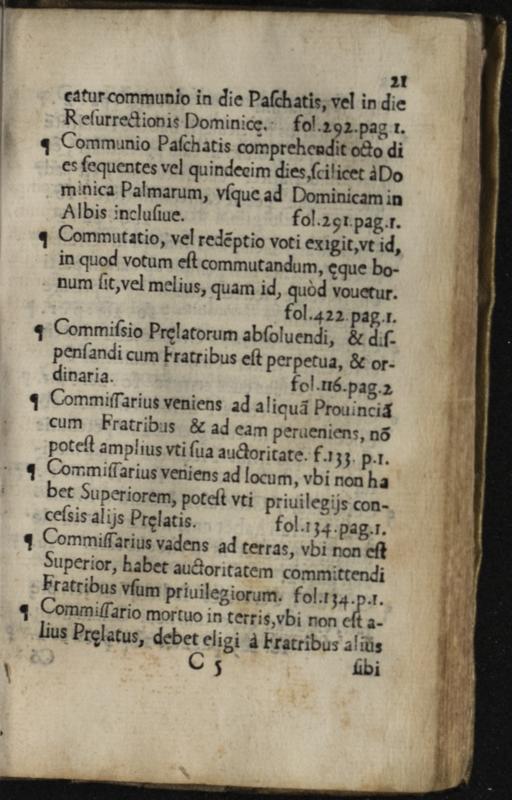 21
catur communio in die Paſchatis, vel in die
Reſurrectionis Dominicę. fol.292.pag 1.
¶ Communio Paſchatis comprehendit octo di
es ſequentes vel quindecim dies,ſcilicet à Do
minica Palmarum, vſque ad Dominicam in
Albis incluſiue. fol.291.pag.1.
¶ Commutatio, vel redẽptio voti exigit,vt id,
in quod votum eſt commutandum, ęque bo-
num ſit,vel melius, quam id, quòd vouetur.
fol.422.pag.1.
¶ Commiſsio Pręlatorum abſoluendi, & diſ-
penſandi cum Fratribus eſt perpetua, & or-
dinaria. fol.116.pag.2
¶ Commiſſarius veniens ad aliquã Prouinciã
cum Fratribus & ad eam perueniens, nõ
poteſt amplius vti ſua auctoritate. f.133. p.1.
¶ Commiſſarius veniens ad locum, vbi non ha
bet Superiorem, poteſt vti priuilegijs con-
ceſsis alijs Pręlatis. fol.134.pag.1.
¶ Commiſſarius vadens ad terras, vbi non eſt
Superior, habet auctoritatem committendi
Fratribus vſum priuilegiorum. fol.134.p.1.
¶ Commiſſario mortuo in terris,vbi non eſt a-
lius Pręlatus, debet eligi à Fratribus alius
C 5 ſibi